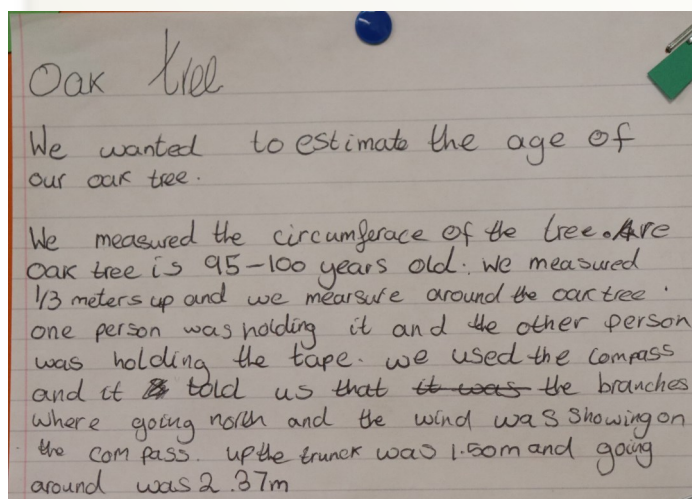 Oak tree
We wanted to estimate the age of
our oak tree.
We measured the circumferace of the tree. Are
oak tree is 95-100 years old. We measured
1/3 meters up and we mearsure around the oak tree.
one person was holding it and the other person
was holding the tape. we used the compass
and it told us that it was the branches
where going north and the wind was showing on
the compass. up the trunck was 1.50m and going
around was 2.37m